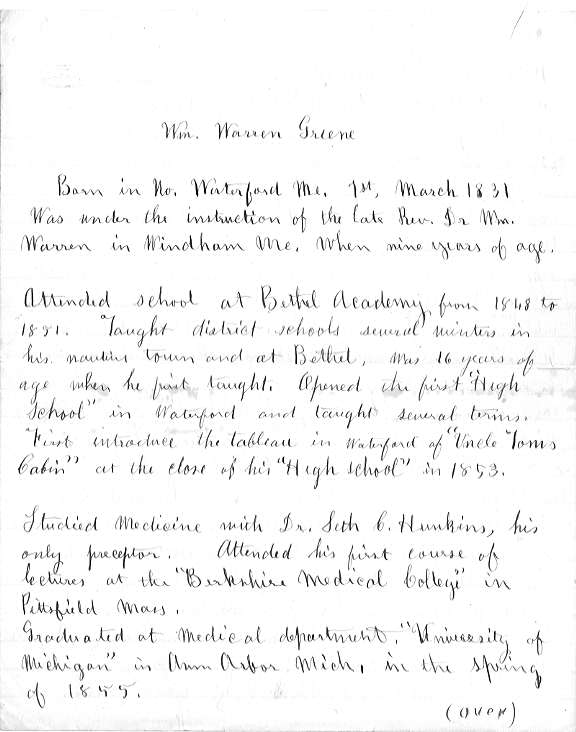 Wm. Warren Greene
Born in No. Waterford Me. 1st, March 1831
Was under the instruction of the late Rev. Dr Wm.
Warren in Windham Me. When nine years of age.
Attended school at Bethel Academy from 1848 to
1851. Taught district schools several winters in
his native town and at Bethel, was 16 years of
age when he first taught. Opened the first "High
School" in Waterford and taught several terms.
First introduce the tableau in Waterford of "Uncle Toms
Cabin" at the close of his "High School" in 1853.
Studied Medicine with Dr. Seth C. Hunkins, his
only preceptor. Attended his first course of
lectures at the "Berkshire Medical College" in
Pittsfield Mass.
Graduated at Medical department, "University of
Michigan" in Ann Arbor Mich, in the spring
of 1855.
(over)